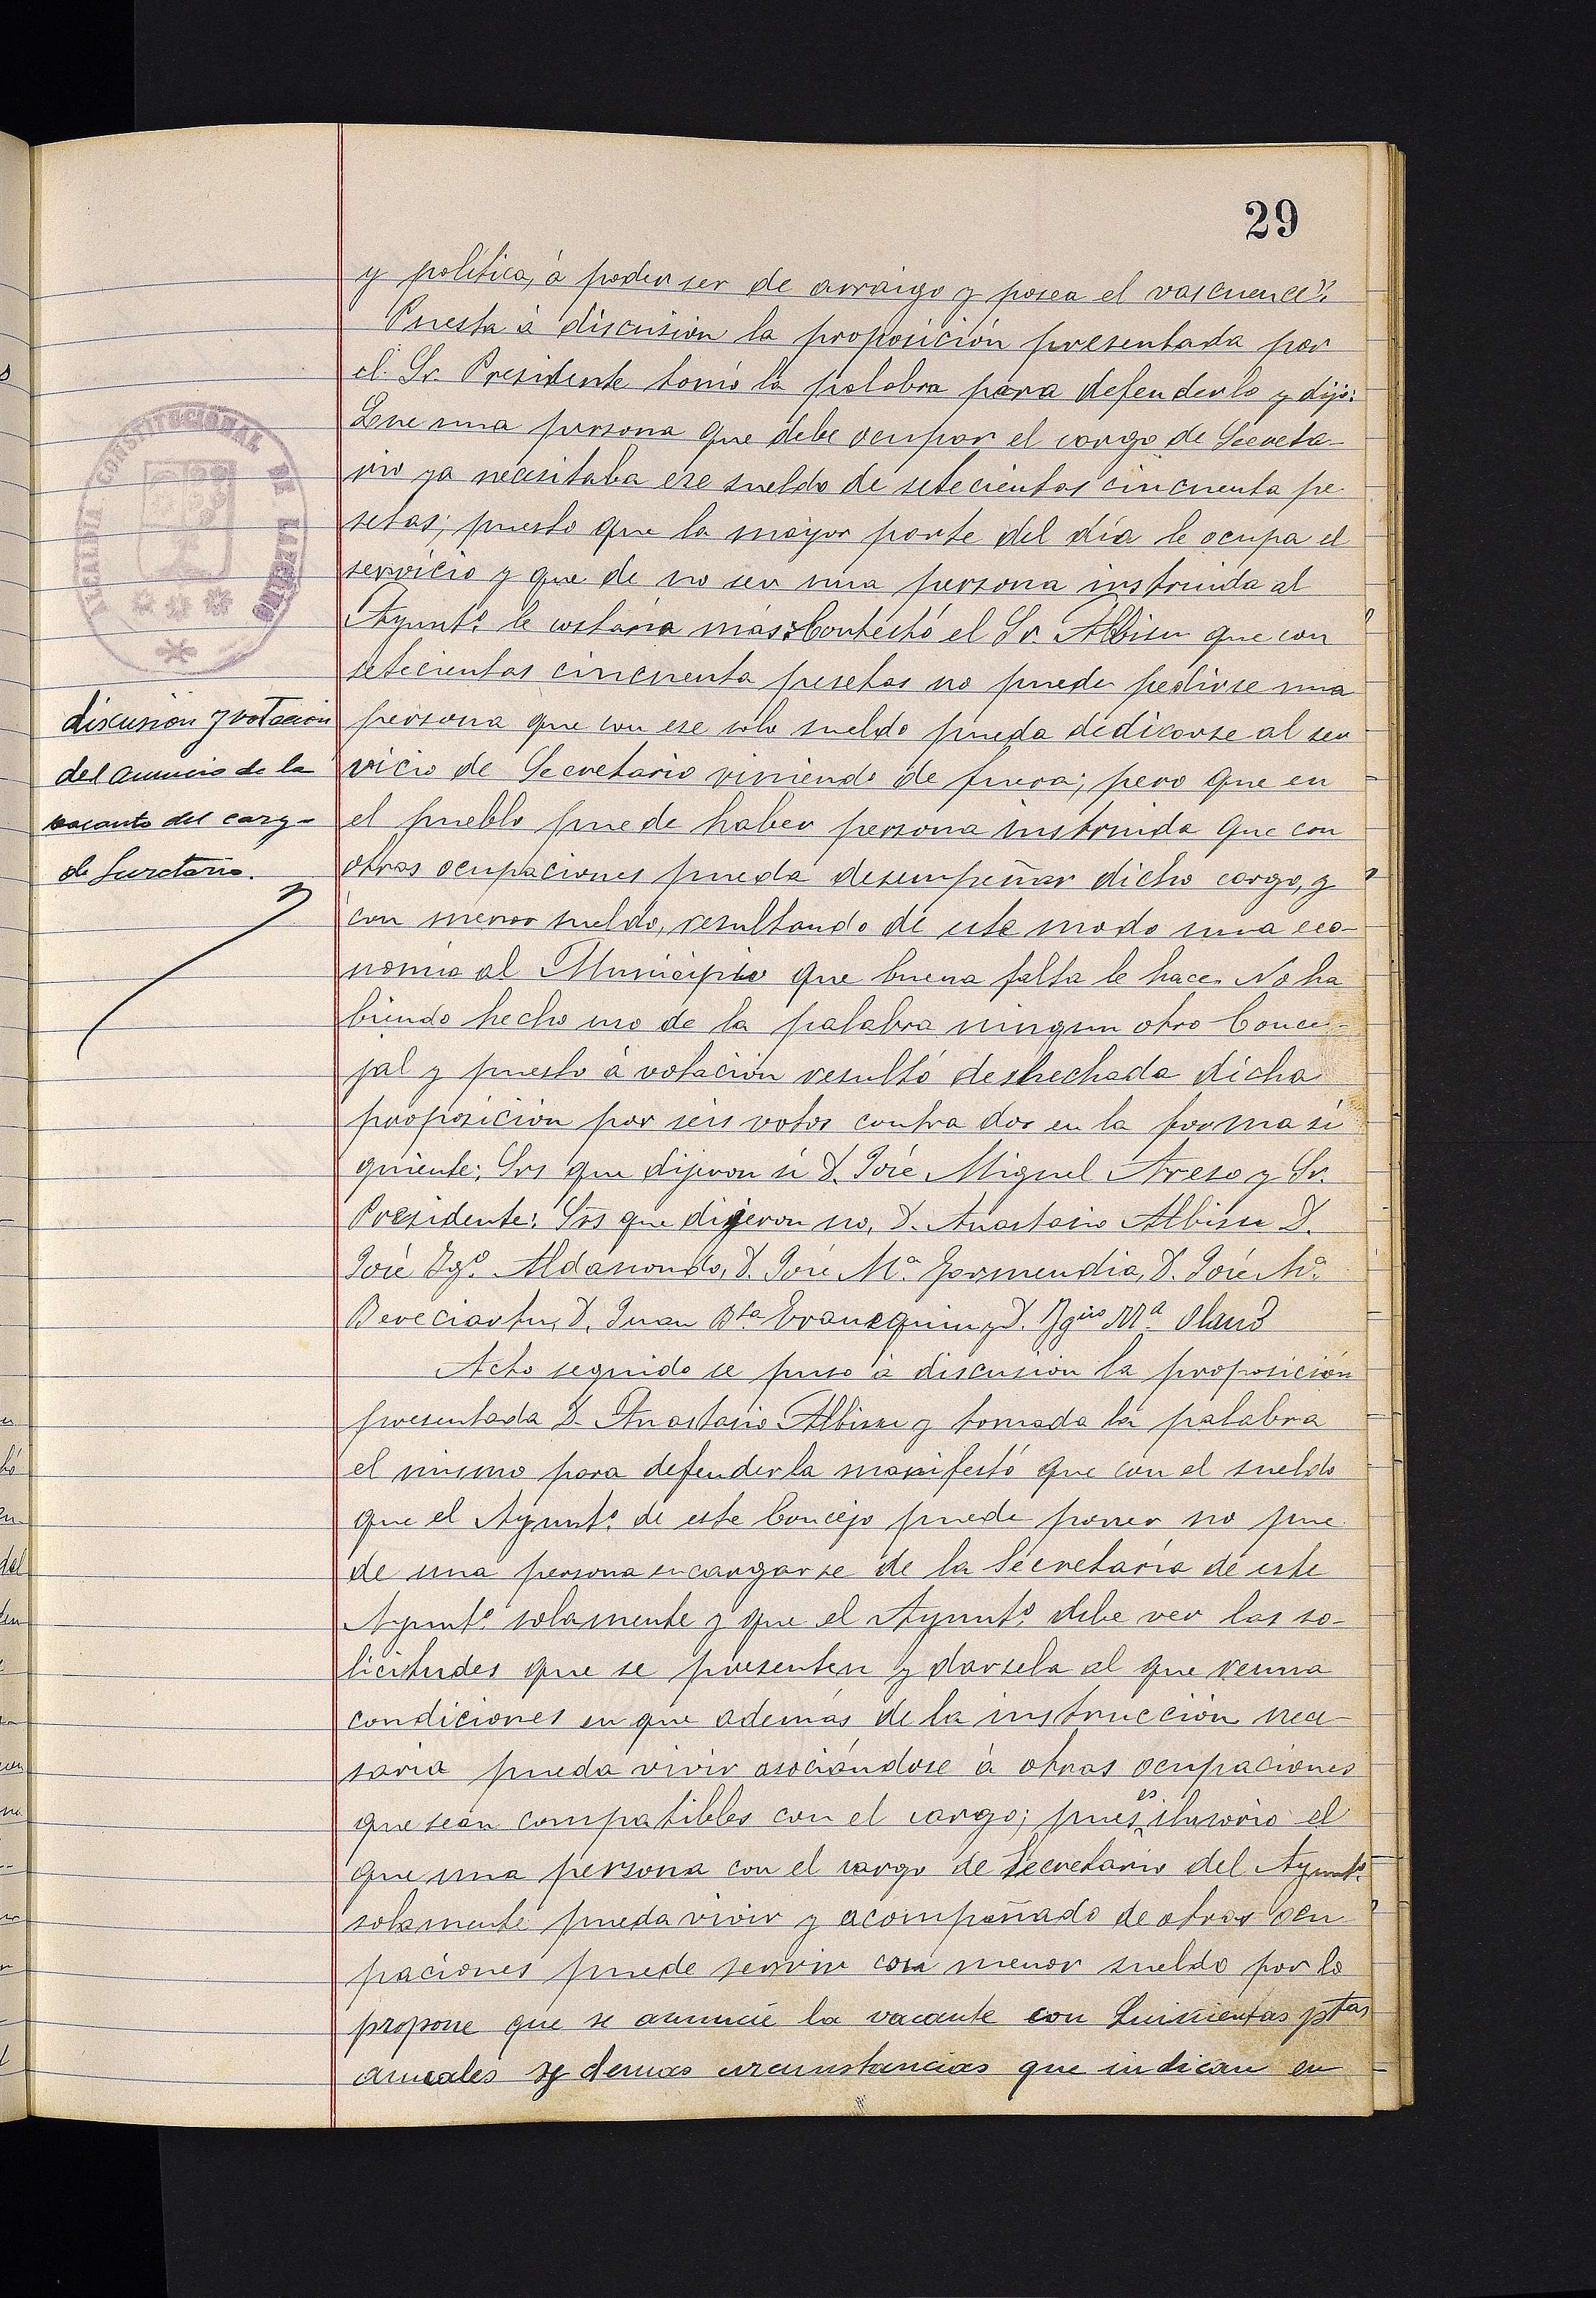 29
y política, á poder ser de arraigo y posea el vascuence".
Puesta á discusion la proposición presentada por
el Sr. Presidente tomó la palabra para defenderlo y dijo:
Que una persona que debe ocupar el cargo de Secreta-
rio ya necesitaba ese sueldo de setecientas cincuenta pe-
setas; puesto que la mayor parte del día le ocupa el
servicio y que de no ser una persona instruida al
Ayunt.º le costaria más: Contestó el Sr. Albisu que con
setecientas cincuenta pesetas no puede pedirse una
persona que con ese solo sueldo pueda dedicarse al ser
vicio de Secretario viniendo de fuera; pero que en
el pueblo puede haber persona instruida que con
otras ocupaciones pueda desempeñar dicho cargo, y
con menor sueldo, resultando de este modo una eco-
nomia al Municipio que buena falta le hace. No ha
biendo hecho uso de la palabra ningun otro Conce-
jal y puesto á votación resultó deshechada dicha
proposición por seis votos contra dos en la forma si
guiente: Srs que dijeron si D. José Miguel Areso y Sr.
Presidente: Srs que dijeron no, D. Anastasio Albisu D.
José Ygº. Aldasoro, D. José M.ª Garmendia, D. José M.ª
Bereciartu, D. Juan Bta Eraunzquin y D. Ygcio M.ª Olano
Acto seguido se puso á discusion la proposición
presentada D. Anastasio Albisu y tomada la palabra
el mismo para defenderla manifestó que con el sueldo
que el Ayunt.º de este Concejo puede poner no pue
de una persona encargarse de la Secretaría de este
Ayunt.º solamente y que el Ayunt.º debe ver las so-
licitudes que se presenten y darsela al que reuna
condiciones en que además de la instruccion nece-
saria pueda vivir asociándose á otras ocupaciones
que sean compatibles con el cargo; pues es ilusorio el
que una persona con el cargo de Secretario del Ayunt.º
solamente pueda vivir y acompañado de otras ocu-
paciones puede servir con menor sueldo por lo
propone que se anuncie la vacante con Quinientas ptas
anuales y demas circunstancias que indican en
ALCALDIA CONSTITUCIONAL DE
discusion y votacion
del anuncio de la
vacante del cargo
de Secretario.